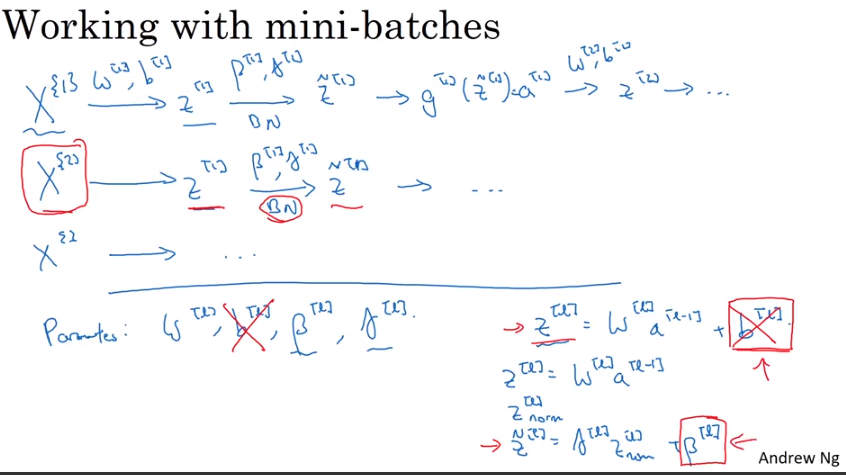 Working with mini-batches
X^{1} →(W^[1], b^[1]) z^[1] →(β^[1], γ^[1] BN) z̃^[1] → g^[1](z̃^[1]) = a^[1] →(W^[2], b^[2]) z^[2] → ...
X^{2} → z^[1] →(β^[1], γ^[1] BN) z̃^[1] → ...
X^{3} → ...
Parameters: W^[l], b^[l], β^[l], γ^[l].
→ z^[l] = W^[l] a^[l-1] + b^[l].
z^[l] = W^[l] a^[l-1]
z^[l]_norm
→ z̃^[l] = γ^[l] z^[l]_norm + β^[l] ←
Andrew Ng